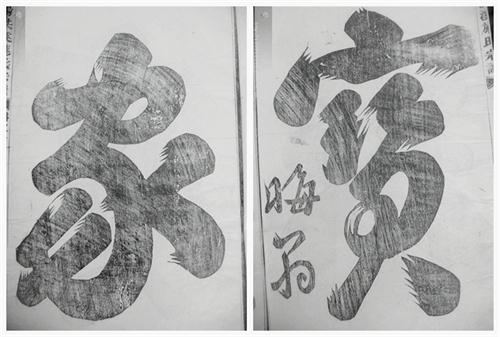 家
寶
晦翁